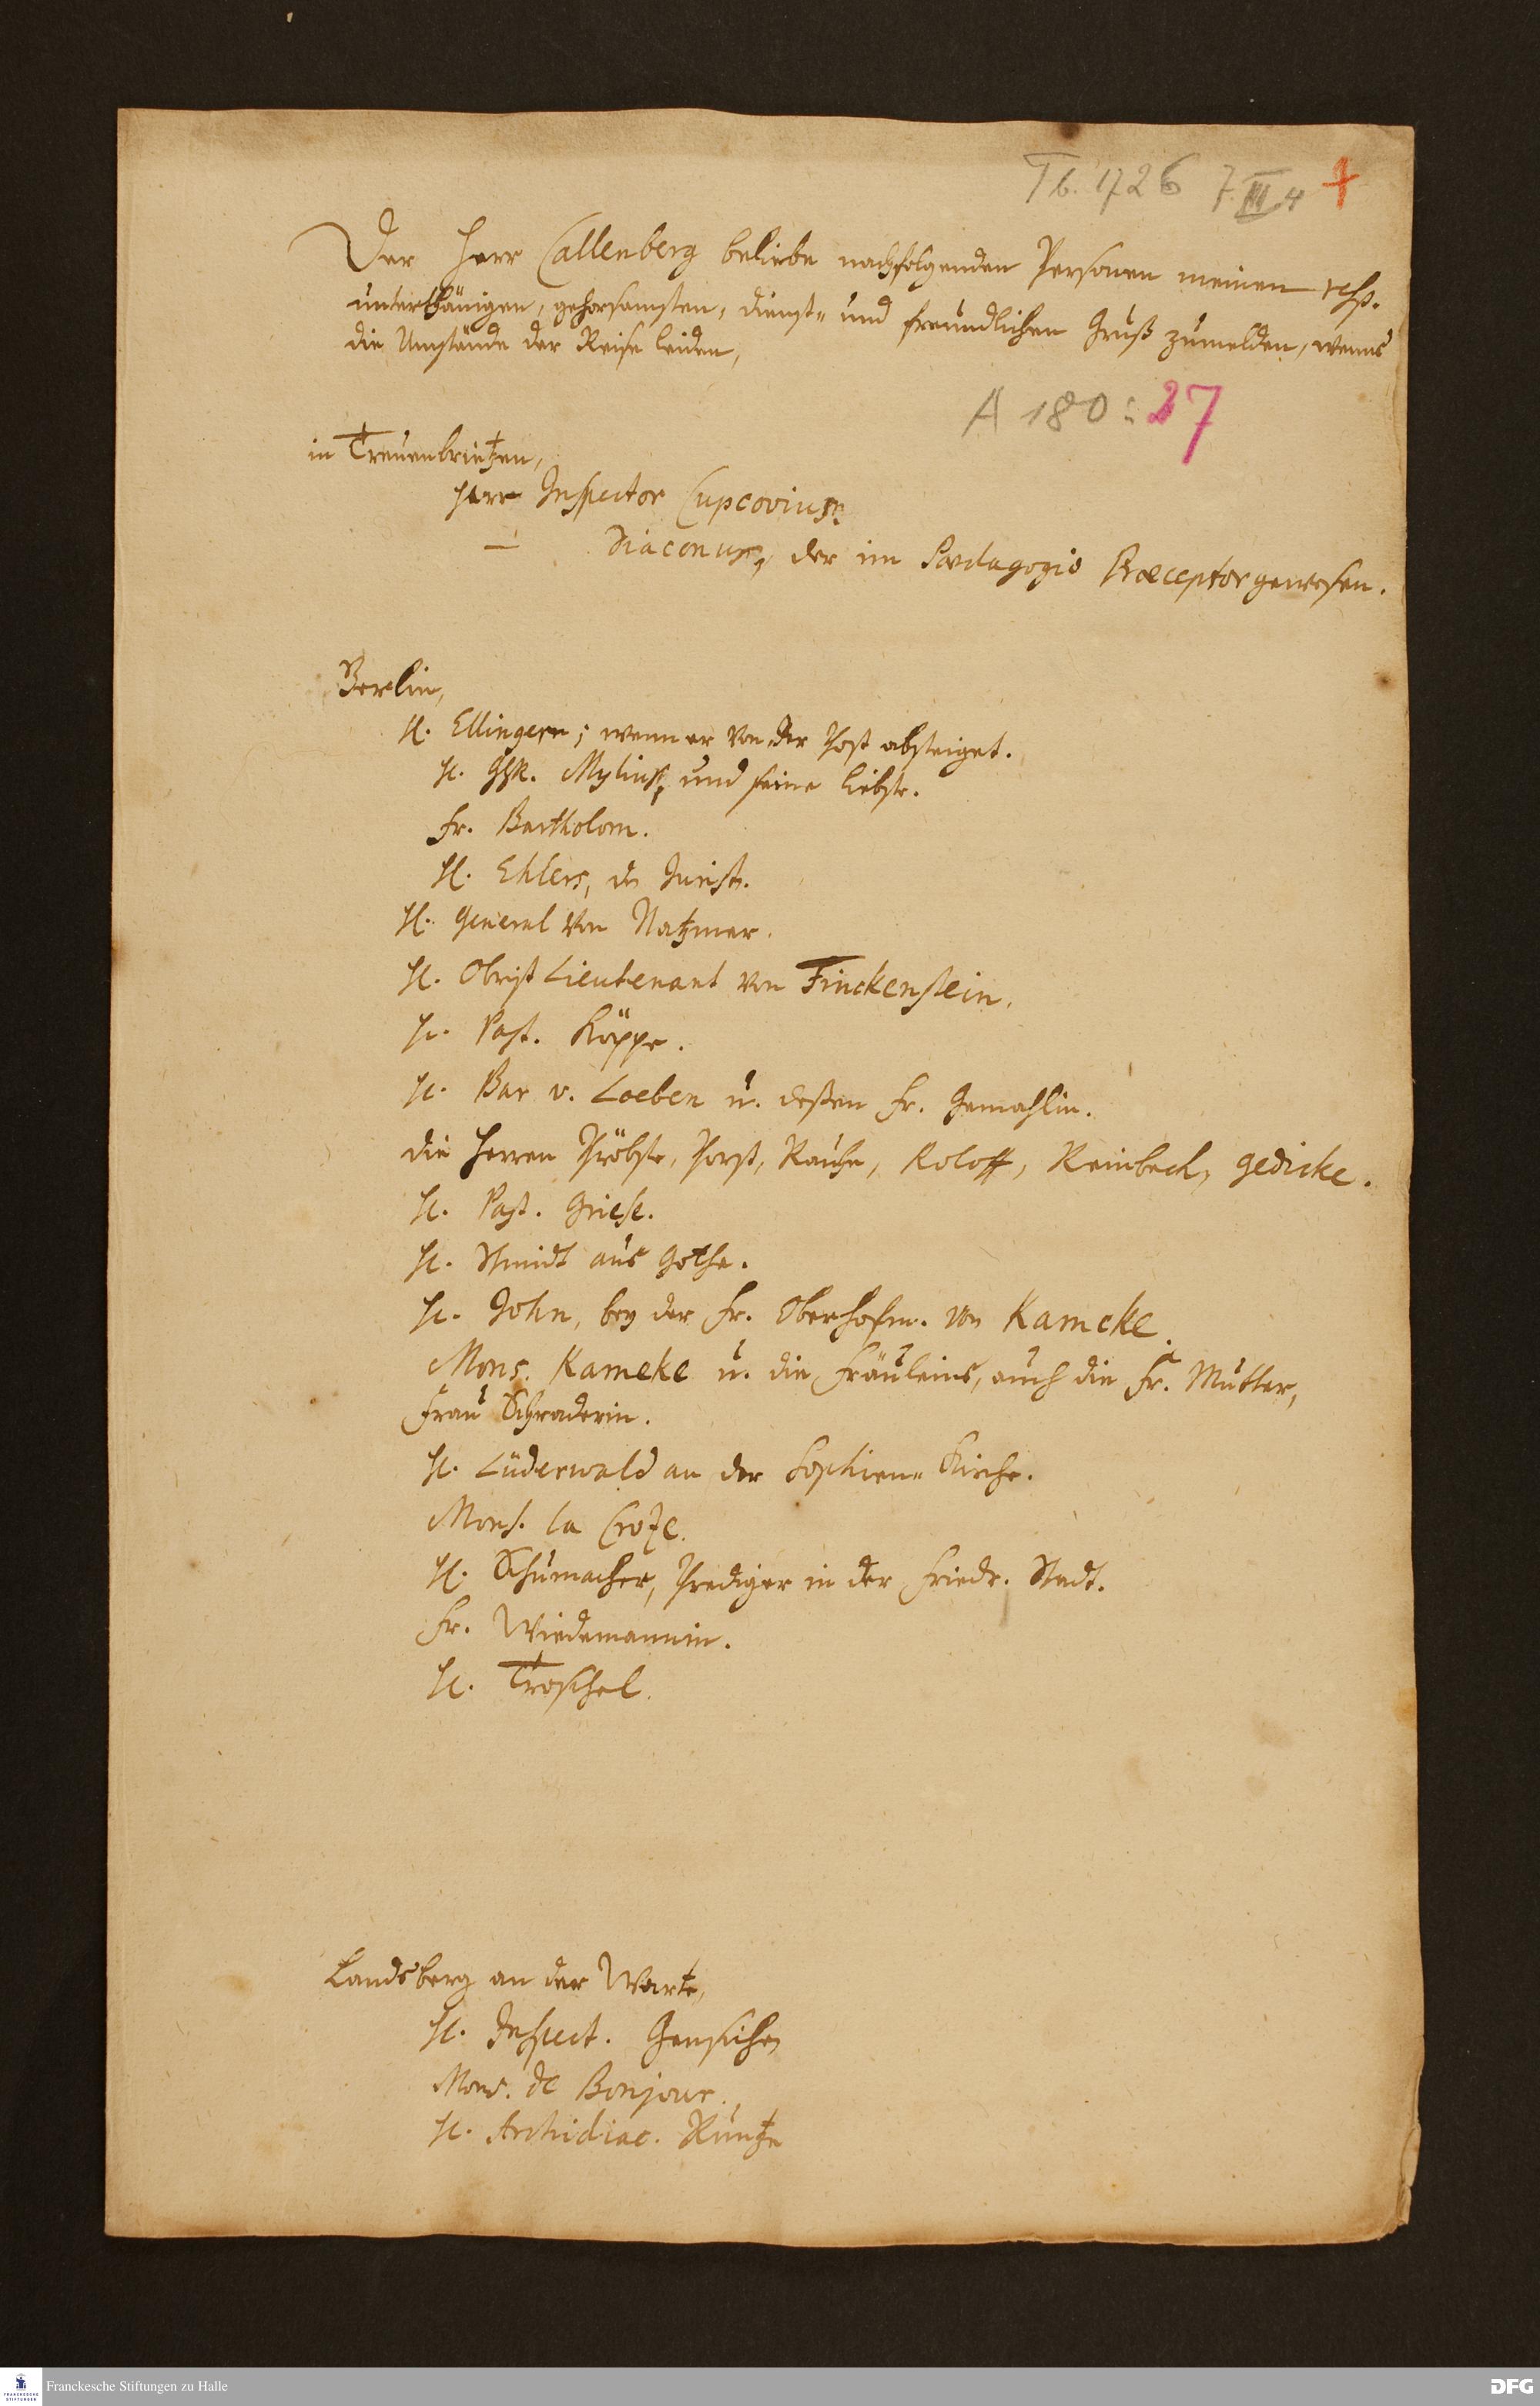 Tb. 1726 7 III 4 7
Der Herr Callenberg beliebe nachfolgenden Personen meinen resp.
unterthänigen, gehorsamsten, dienst- und freundlichen Gruß zumelden, wenns
die Umstände der Reise leiden,
A 180 : 27
in Treuenbrietzen,
Herr Inspector Cupcovius.
— Diaconus, der im Pædagogio Præceptor gewesen.
Berlin,
H. Ellingern; wenn er von der Post absteiget.
H. Mylius, und seine Liebste.
Fr. Barthol.
H. Ehlers, der Jurist.
H. General von Natzmer.
H. Obrist Lieutenant von Finckenstein.
H. Past. Köppe.
H. Bar v. Loeben u. deßen Fr. Gemahlin.
die Herren Pröbste, Porst, Raue, Roloff, Reinbeck, Gedicke.
H. Past. Griese.
H. Schmidt aus Gotha.
H. John, bey der Fr. Oberhofm. von Kamcke.
Mons. Kameke u. die Fräuleins, auch die Fr. Mutter,
Frau Schraderin.
H. Lüderwald an der Sophien- Kirche.
Mons. la Croze.
H. Schumacher, Prediger in der Friedr. Stadt.
Fr. Wiedemannin.
H. Troschel.
Landsberg an der Warte,
H. Inspect. Gensichen
Mons. de Bonjour.
H. Archidiac. Kuntze
Franckesche Stiftungen zu Halle
DFG